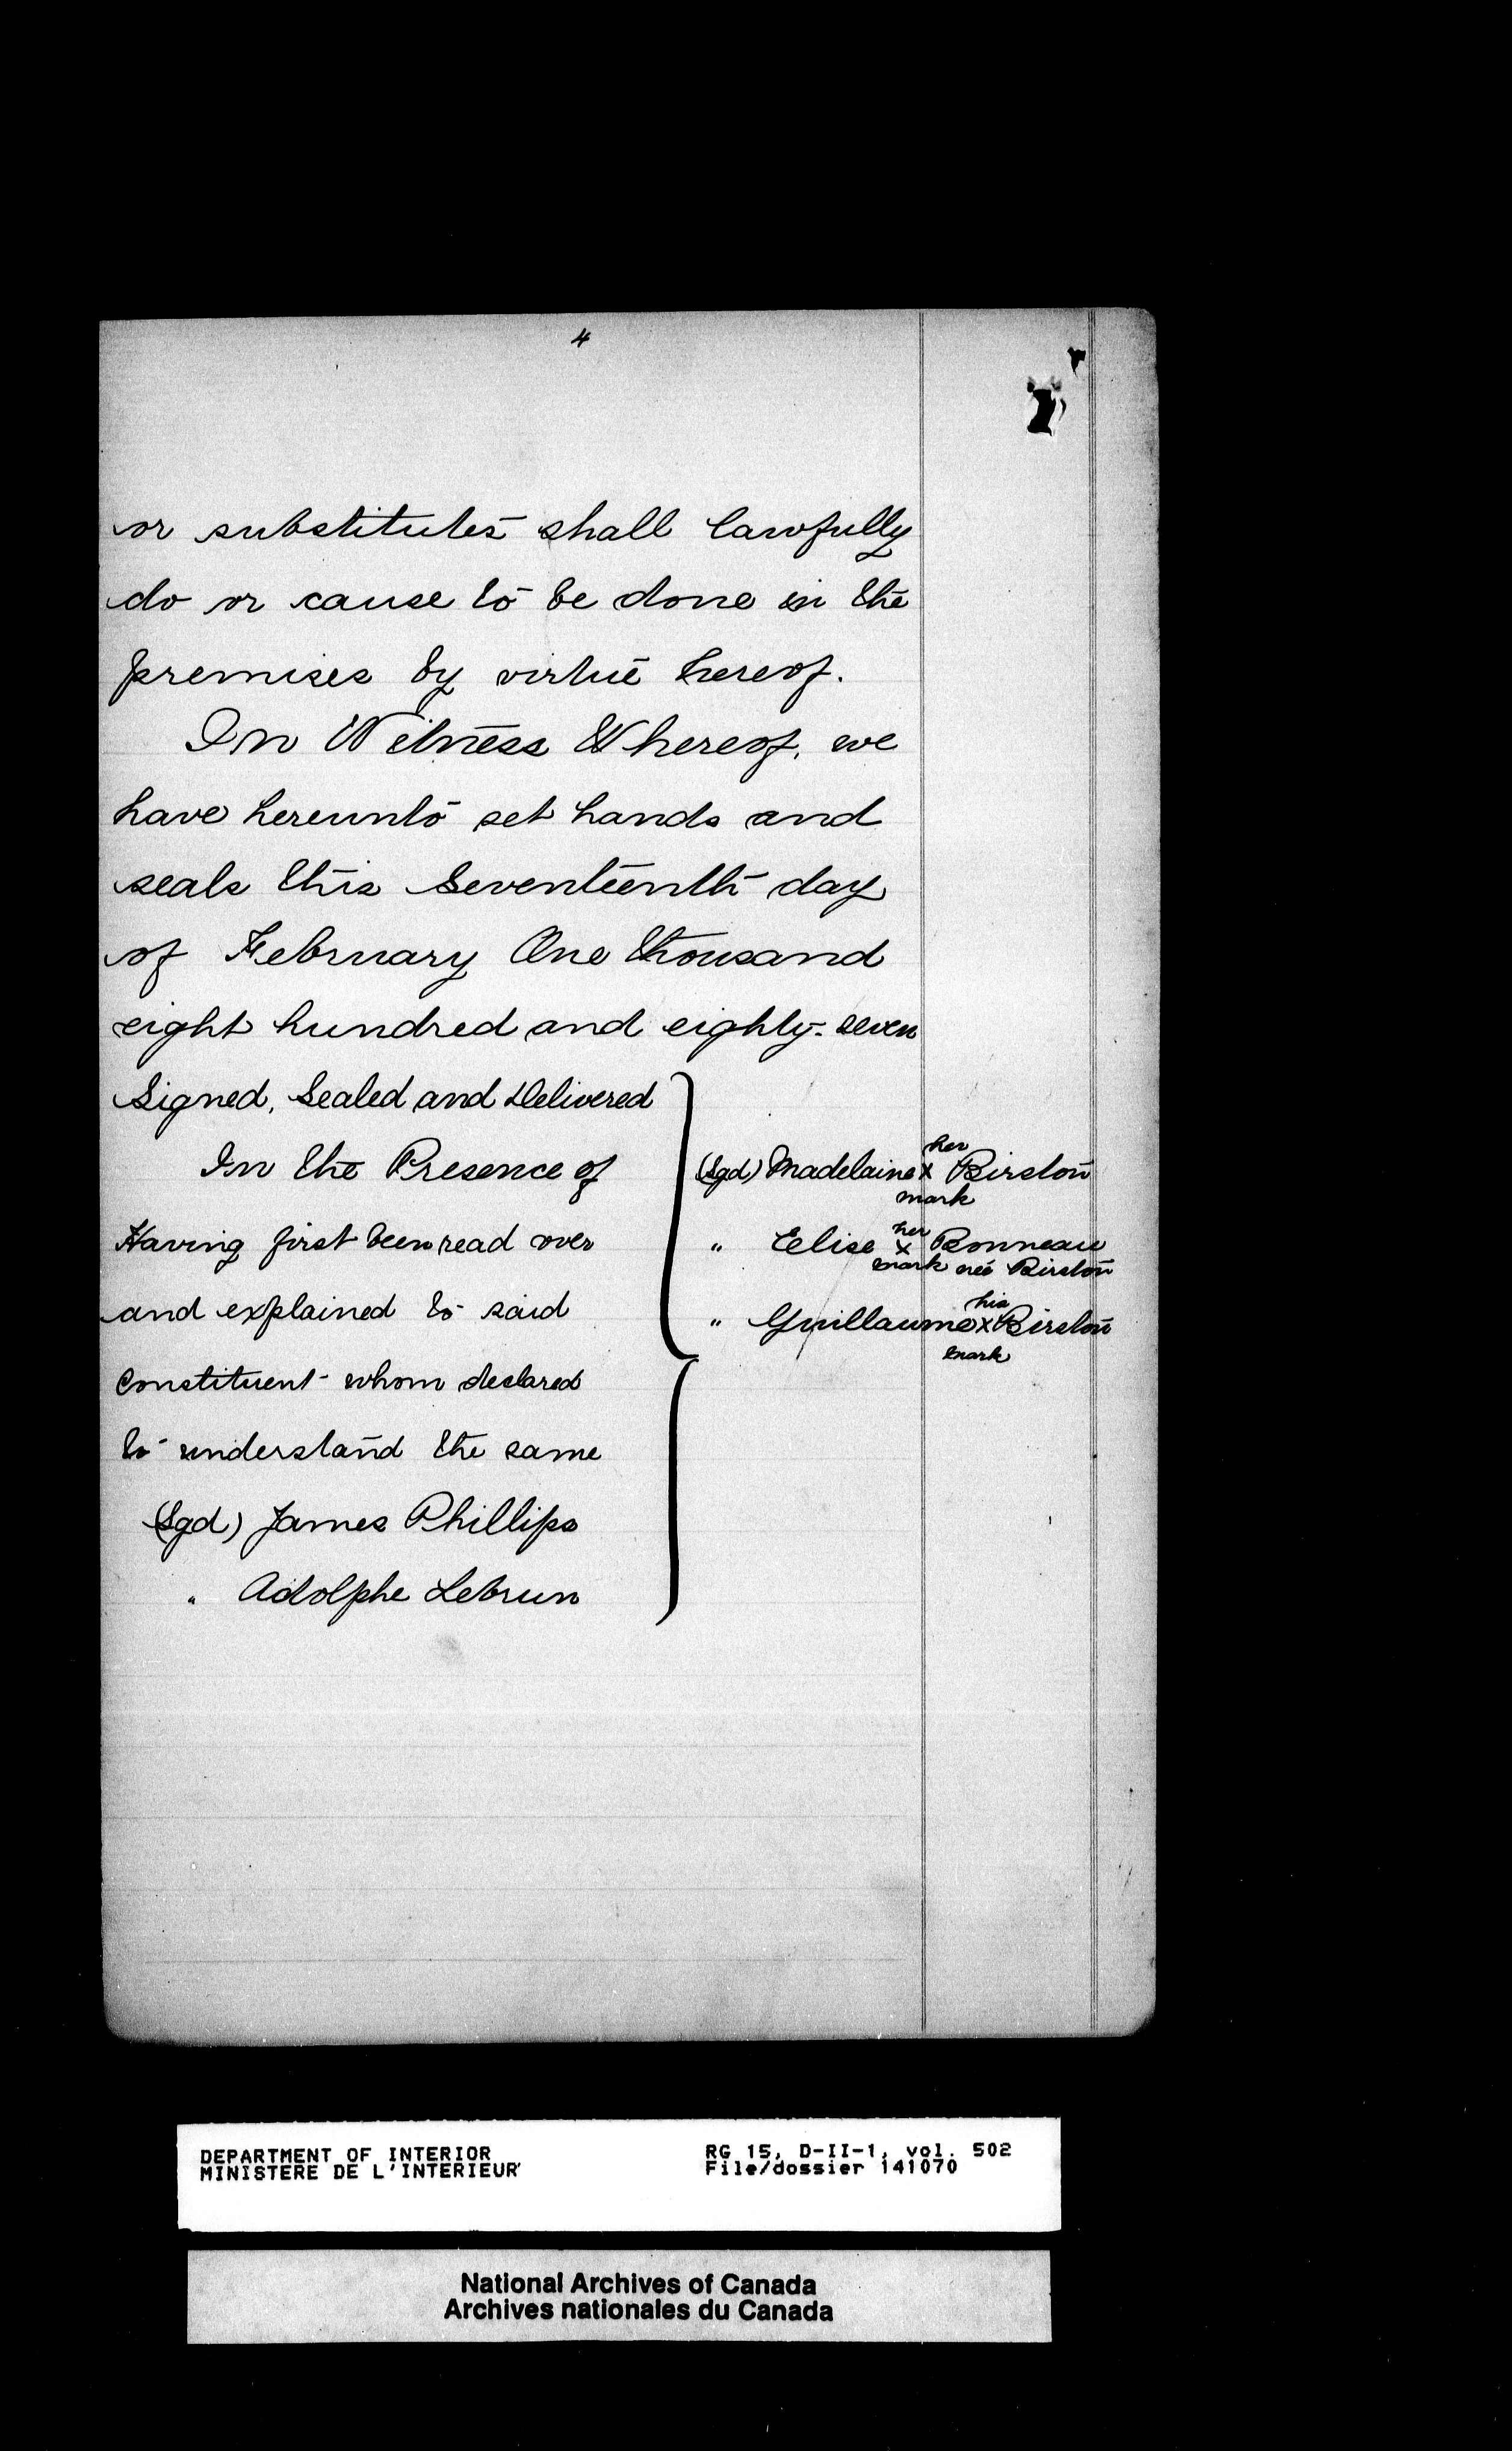 4
or substitutes shall lawfully
do or cause to be done in the
premises by virtue hereof.
In Witness Whereof, we
have hereunto set hands and
seals this Seventeenth day
of February One thousand
eight hundred and eighty-seven
Signed, Sealed and Delivered
In the Presence of
Having first been read over
and explained to said
Constituent whom declared
to understand the same
(Sgd) James Phillips
" Adolphe Lebrun
her
(Sgd) Madelaine x Birston
mark
her
" Eelise x Bonneau
mark neé Birston
his
" Guillaume x Birston
mark
DEPARTMENT OF INTERIOR
MINISTERE DE L'INTERIEUR
RG 15, D-II-1, vol. 502
File/dossier 141070
National Archives of Canada
Archives nationales du Canada